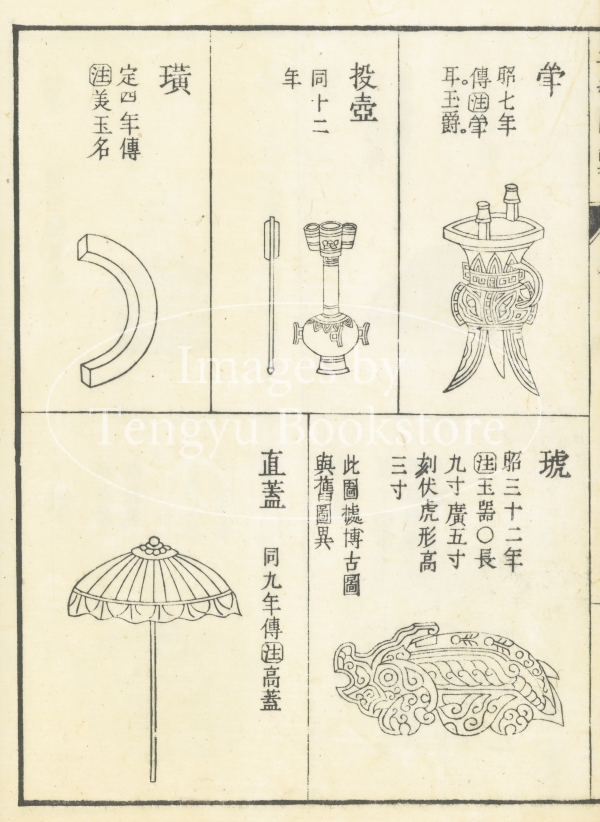 斚
昭七年
傳注斚
耳。玉爵。
投壺
同十二
年
璜
定四年傳
注美玉名
琥
昭三十二年
注玉器○長
九寸廣五寸
刻伏虎形高
三寸
此圖據博古圖
與舊圖異
直蓋
同九年傳注高蓋
Images by
Tengyu Bookstore